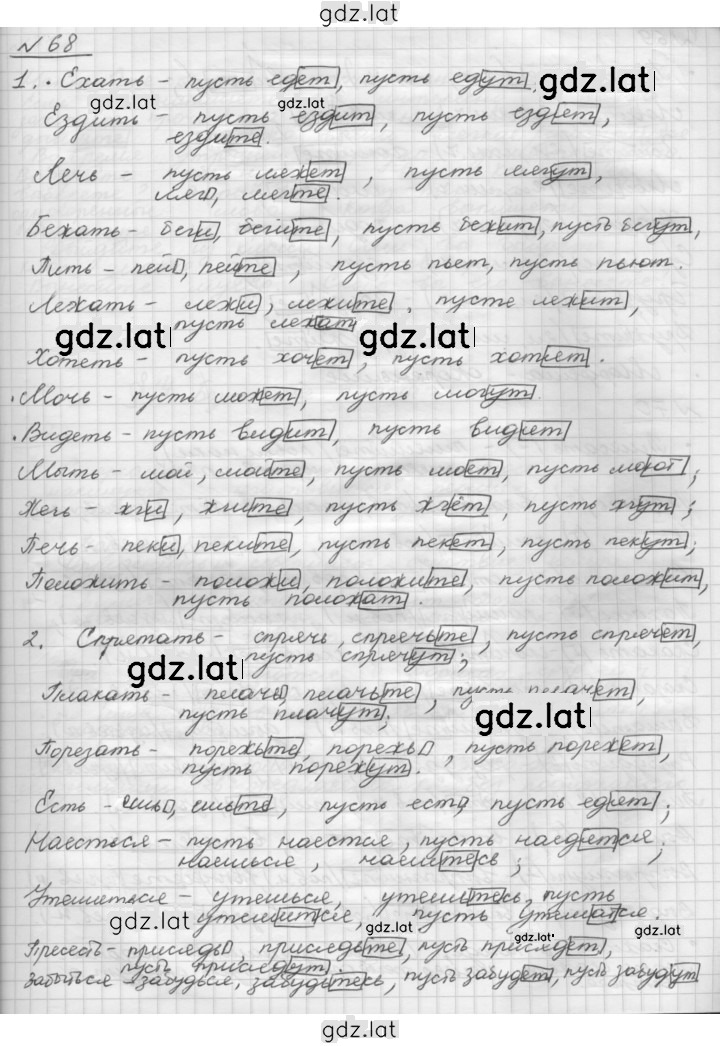 gdz.lat
№ 68
1. · Ехать – пусть едет, пусть едут. gdz.lat
gdz.lat gdz.lat
Ездить – пусть ездит, пусть ездят,
ездите.
Лечь – пусть ляжет, пусть лягут,
ляг, лягте.
Бежать – беги, бегите, пусть бежит, пусть бегут,
Пить – пей, пейте, пусть пьет, пусть пьют.
Лежать – лежи, лежите, пусть лежит,
gdz.lat пусть лежат gdz.lat
Хотеть – пусть хочет, пусть хотят.
· Мочь – пусть может, пусть могут.
· Видеть – пусть видит, пусть видят
Мыть – мой, мойте, пусть моет, пусть моют;
Жечь – жги, жгите, пусть жгёт, пусть жгут;
Печь – пеки, пеките, пусть пекет, пусть пекут;
Положить – положи, положите, пусть положит,
пусть положат.
2. Спрятать – спрячь, спрячьте, пусть спрячет,
gdz.lat пусть спрячут;
Плакать – плачь, плачьте, пусть плачет,
пусть плачут; gdz.lat
Порезать – порежьте, порежь, пусть порежет,
пусть порежут.
Есть – ешь, ешьте, пусть ест, пусть едят;
Наесться – пусть наестся, пусть наедятся;
наешься, наешьтесь;
Утешиться – утешься, утешьтесь, пусть
gdz.lat утешится, пусть утешатся.
gdz.lat
Присесть – присядь, присядьте, пусть присядет,
пусть присядут.
gdz.lat
Забыться – забудься, забудьтесь, пусть забудет, пусть забудут
gdz.lat